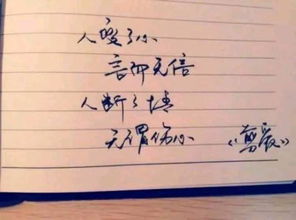 人变了心
言而无信
人断了情
无谓伤心
《剪爱》